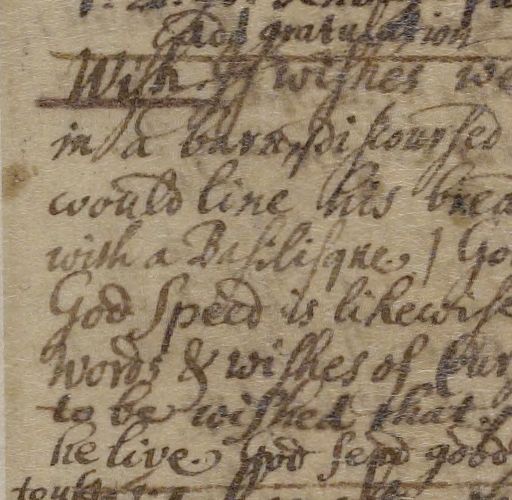 And gratulation
Wish. If wishes we
in a barn, discoursed
would line his brea
with a Basilisque. / Go
God speed is likewise
words & wishes of
to be wished that
he live. God send good